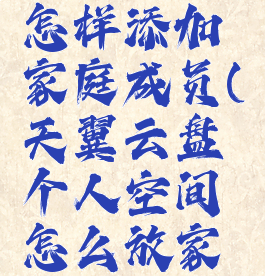 怎样添加
家庭成员(
天翼云盘
个人空间
怎么放家